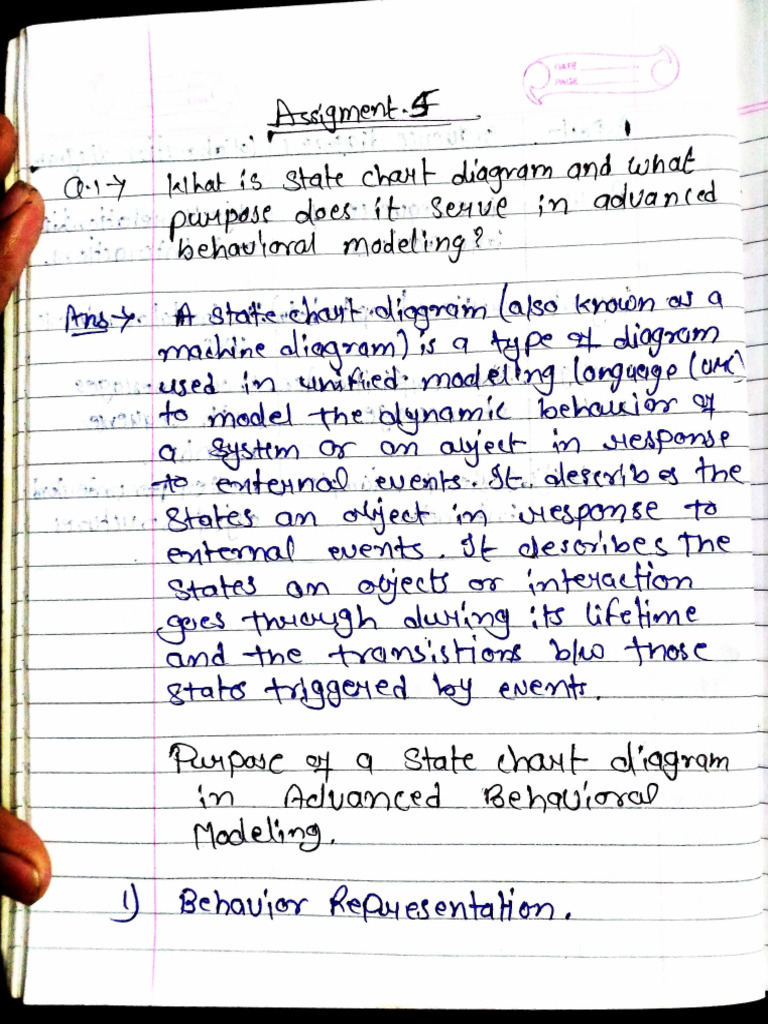 DATE
PAGE
Assigment.5
Q.1→ What is state chart diagram and what
purpose does it serve in advanced
behavioral modeling?
Ans→. A state chart diagram (also known as a
machine diagram) is a type of diagram
used in unified modeling language (UML)
to model the dynamic behavior of
a system or an object in response
to external events. It describes the
states an object in response to
external events. It describes the
states an objects or interaction
goes through during its lifetime
and the transistions b/w those
stats triggered by events.
Purpose of a State chart diagram
in Advanced Behavioral
Modeling.
1) Behavior Representation.